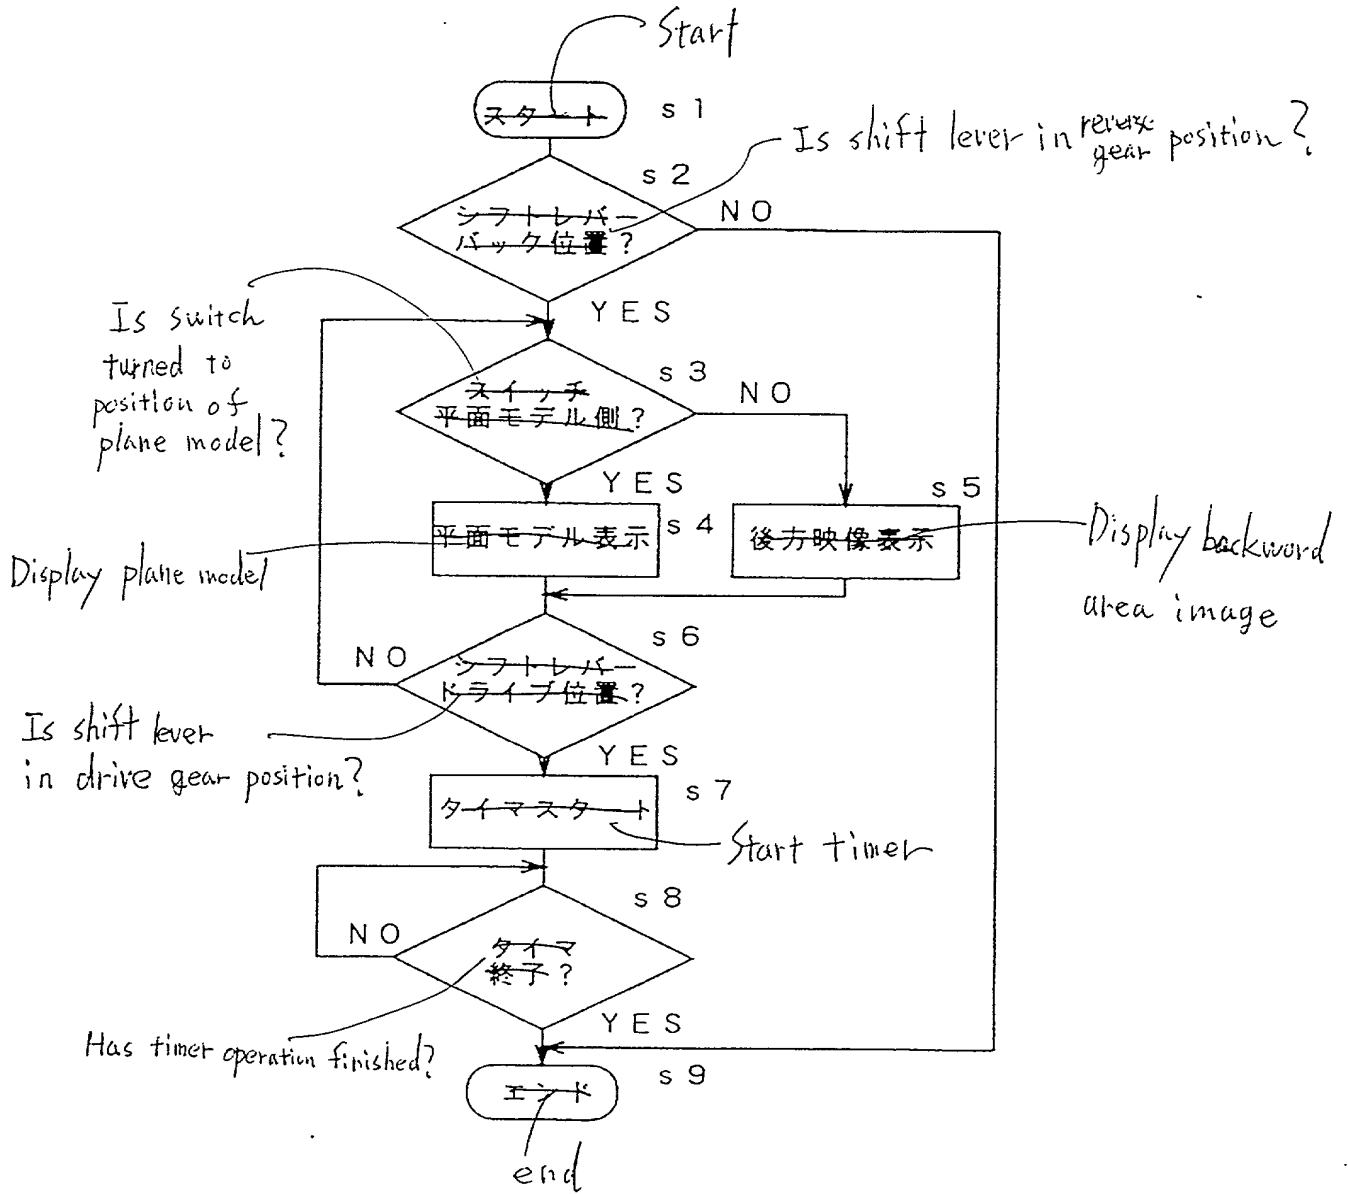 Start
スタート
s1
Is shift lever in reverse gear position?
s2
シフトレバー
バック位置?
NO
YES
Is switch
turned to
position of
plane model?
s3
スイッチ
平面モデル側?
NO
YES
s4
平面モデル表示
Display plane model
s5
後方映像表示
Display backword
area image
s6
シフトレバー
ドライブ位置?
NO
Is shift lever
in drive gear position?
YES
s7
タイマスタート
Start timer
s8
タイマ
終了?
NO
YES
Has timer operation finished?
s9
エンド
end